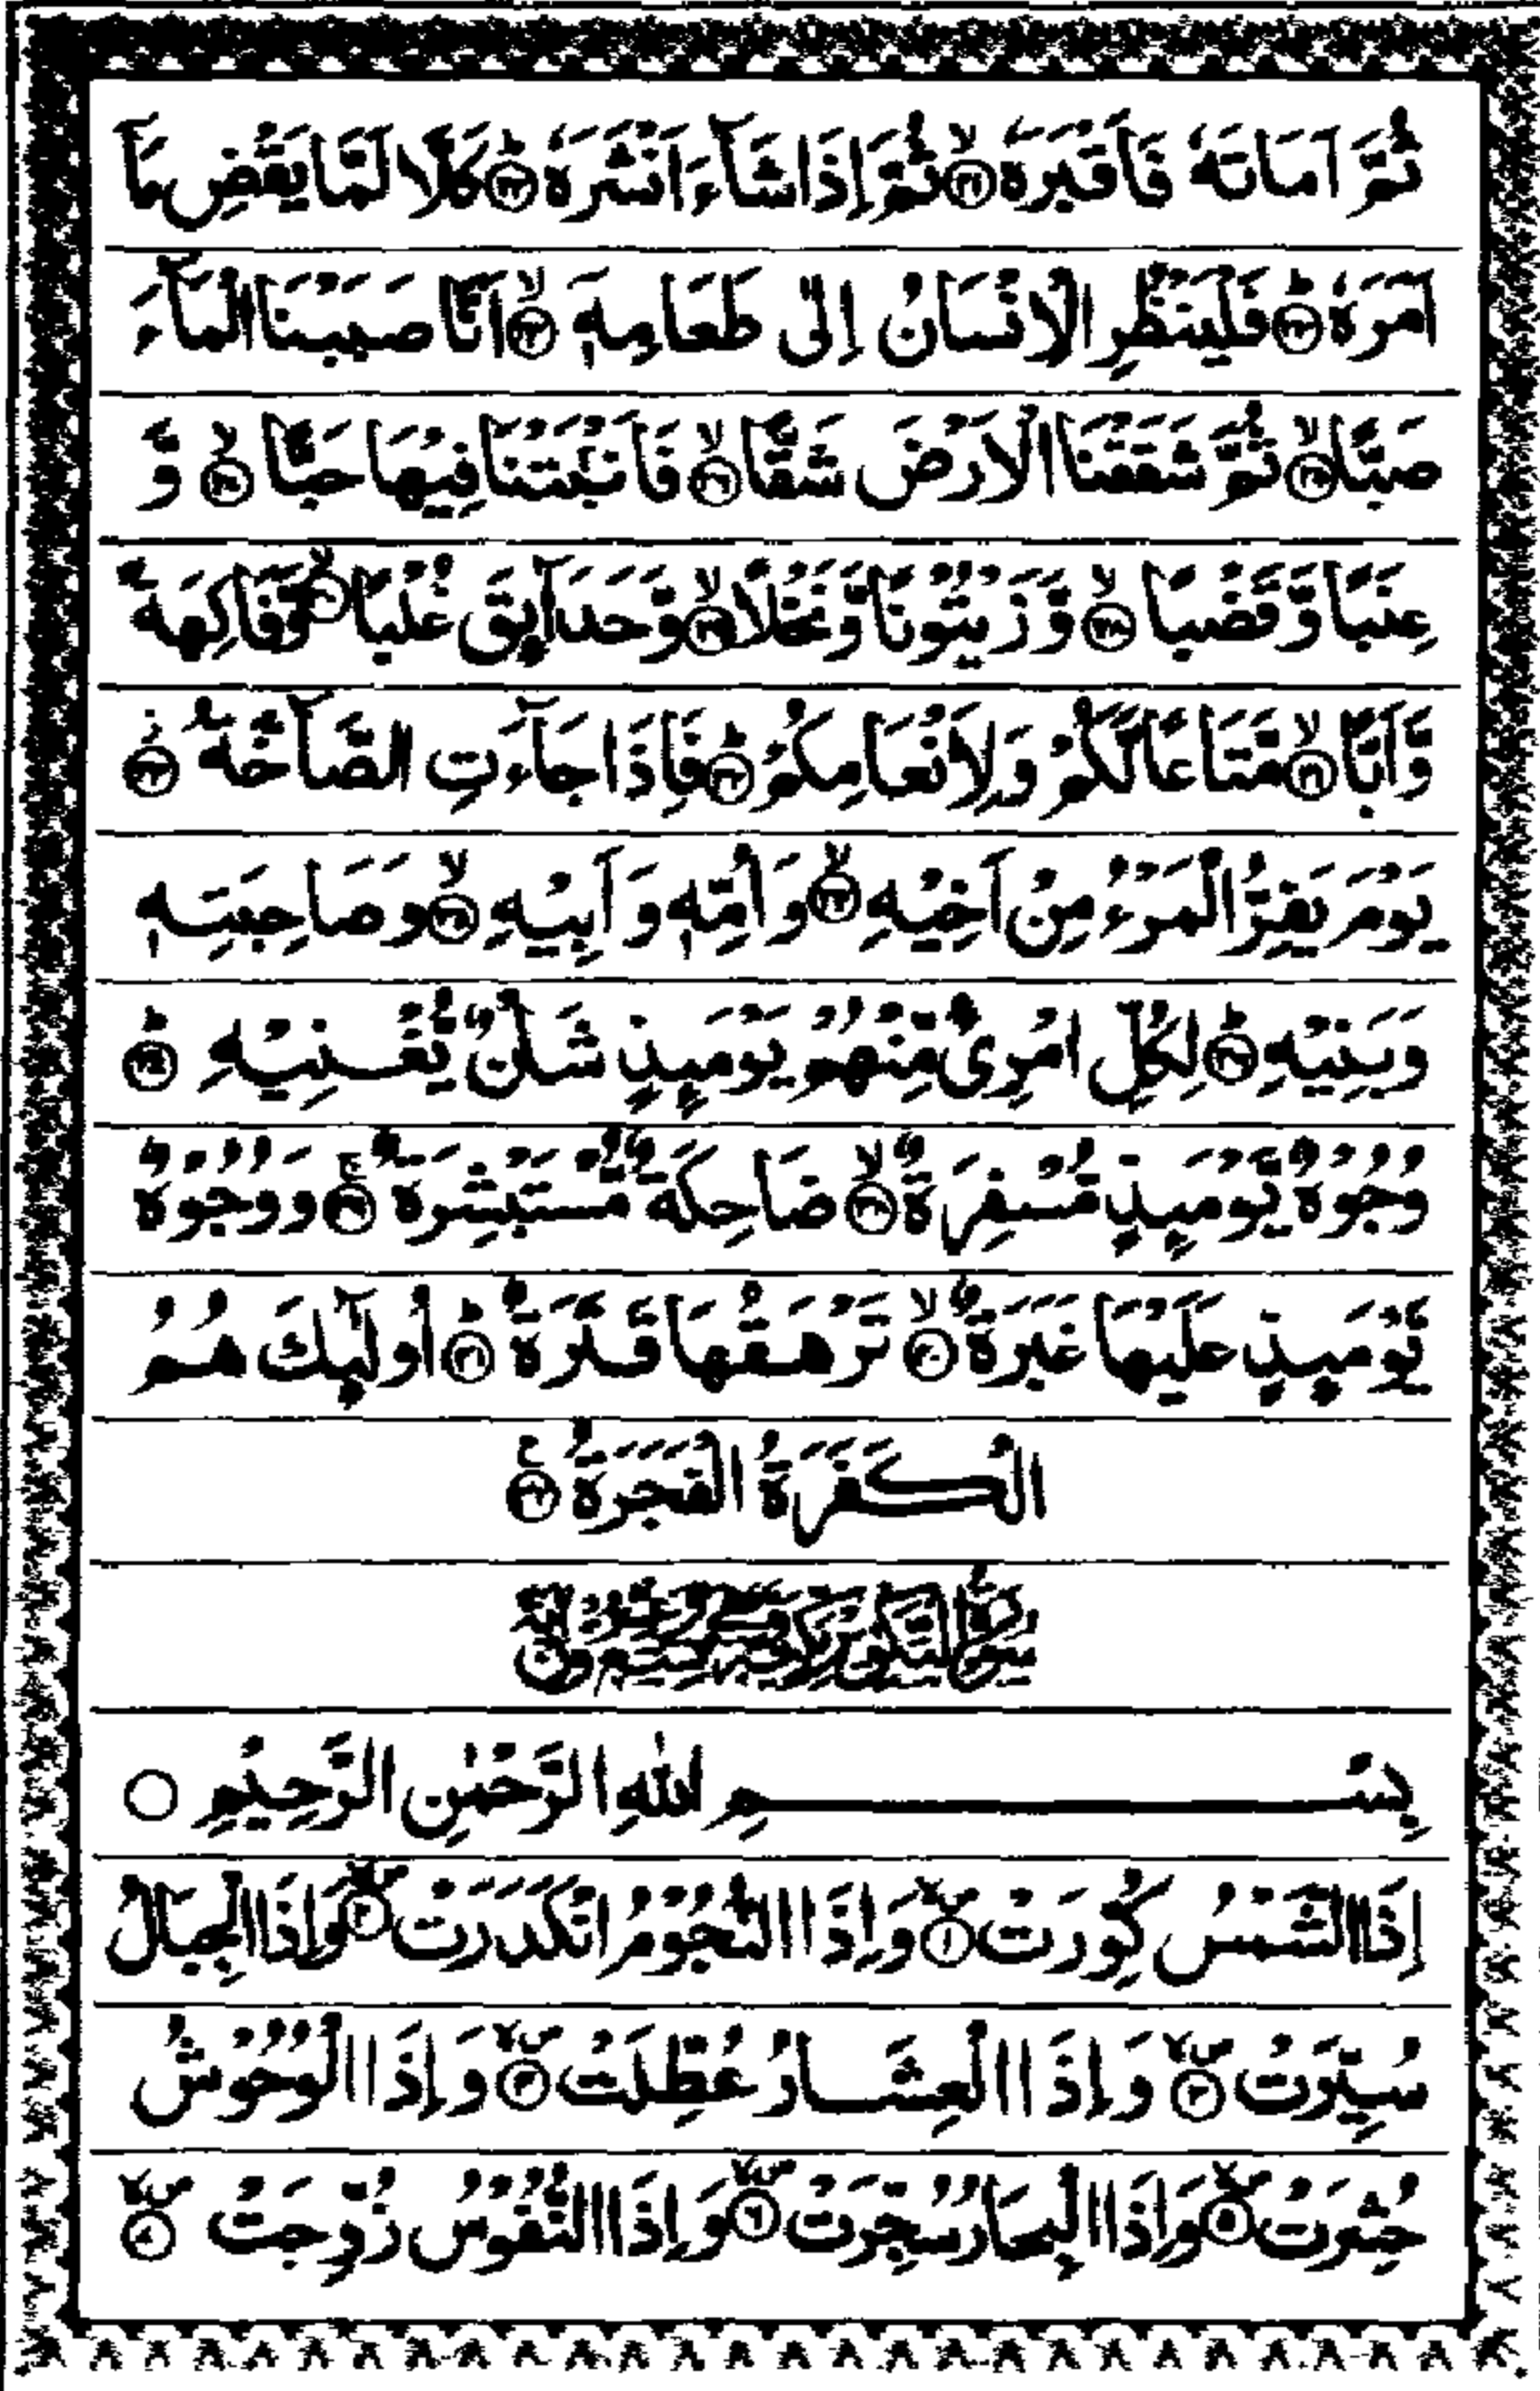 ثُمَّ اَمَاتَهٗ فَاَقْبَرَهٗ ﴿٢١﴾ ثُمَّ اِذَا شَآءَ اَنْشَرَهٗ ﴿٢٢﴾ كَلَّا لَمَّا يَقْضِ مَآ
اَمَرَهٗ ﴿٢٣﴾ فَلْيَنْظُرِ الْاِنْسَانُ اِلٰى طَعَامِهٖٓ ﴿٢٤﴾ اَنَّا صَبَبْنَا الْمَآءَ
صَبًّا ﴿٢٥﴾ ثُمَّ شَقَقْنَا الْاَرْضَ شَقًّا ﴿٢٦﴾ فَاَنْۢبَتْنَا فِيْهَا حَبًّا ﴿٢٧﴾ وَّ
عِنَبًا وَّقَضْبًا ﴿٢٨﴾ وَّزَيْتُوْنًا وَّنَخْلًا ﴿٢٩﴾ وَّحَدَآىِٕقَ غُلْبًا ﴿٣٠﴾ وَّفَاكِهَةً
وَّاَبًّا ﴿٣١﴾ مَّتَاعًا لَّكُمْ وَلِاَنْعَامِكُمْ ﴿٣٢﴾ فَاِذَا جَآءَتِ الصَّآخَّةُ ﴿٣٣﴾
يَوْمَ يَفِرُّ الْمَرْءُ مِنْ اَخِيْهِ ﴿٣٤﴾ وَاُمِّهٖ وَاَبِيْهِ ﴿٣٥﴾ وَصَاحِبَتِهٖ
وَبَنِيْهِ ﴿٣٦﴾ لِكُلِّ امْرِئٍ مِّنْهُمْ يَوْمَىِٕذٍ شَاْنٌ يُّغْنِيْهِ ﴿٣٧﴾
وُجُوْهٌ يَّوْمَىِٕذٍ مُّسْفِرَةٌ ﴿٣٨﴾ ضَاحِكَةٌ مُّسْتَبْشِرَةٌ ﴿٣٩﴾ وَوُجُوْهٌ
يَّوْمَىِٕذٍ عَلَيْهَا غَبَرَةٌ ﴿٤٠﴾ تَرْهَقُهَا قَتَرَةٌ ﴿٤١﴾ اُولٰٓىِٕكَ هُمُ
الْكَفَرَةُ الْفَجَرَةُ ﴿٤٢﴾
سُوْرَةُ التَّكْوِيْرِ مَكِّيَّةٌ
بِسْمِ اللهِ الرَّحْمٰنِ الرَّحِيْمِ
اِذَا الشَّمْسُ كُوِّرَتْ ﴿١﴾ وَاِذَا النُّجُوْمُ انْكَدَرَتْ ﴿٢﴾ وَاِذَا الْجِبَالُ
سُيِّرَتْ ﴿٣﴾ وَاِذَا الْعِشَارُ عُطِّلَتْ ﴿٤﴾ وَاِذَا الْوُحُوْشُ
حُشِرَتْ ﴿٥﴾ وَاِذَا الْبِحَارُ سُجِّرَتْ ﴿٦﴾ وَاِذَا النُّفُوْسُ زُوِّجَتْ ﴿٧﴾